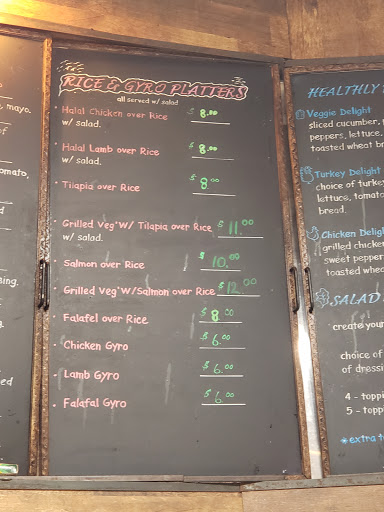 RICE & GYRO PLATTERS
all served w/ salad
Halal Chicken over Rice $ 8.00
w/ salad.
Halal Lamb over Rice $ 8.00
w/ salad.
Tilapia over Rice $ 8.00
Grilled Veg'W/ Tilapia over Rice $ 11.00
w/ salad.
Salmon over Rice $ 10.00
Grilled Veg'W/Salmon over Rice $ 12.00
Falafel over Rice $ 8.00
Chicken Gyro $ 6.00
Lamb Gyro $ 6.00
Falafal Gyro $ 6.00
mayo.
of
omato,
ing.
ed
HEALTHLY
Veggie Delight
sliced cucumber,
peppers, lettuce,
toasted wheat br
Turkey Delight
choice of turkey
lettuce, tomato
bread.
Chicken Deligh
grilled chicken
sweet pepper
toasted whea
SALAD
create your
choice of
of dressi
4 - toppi
5 - toppi
*extra t